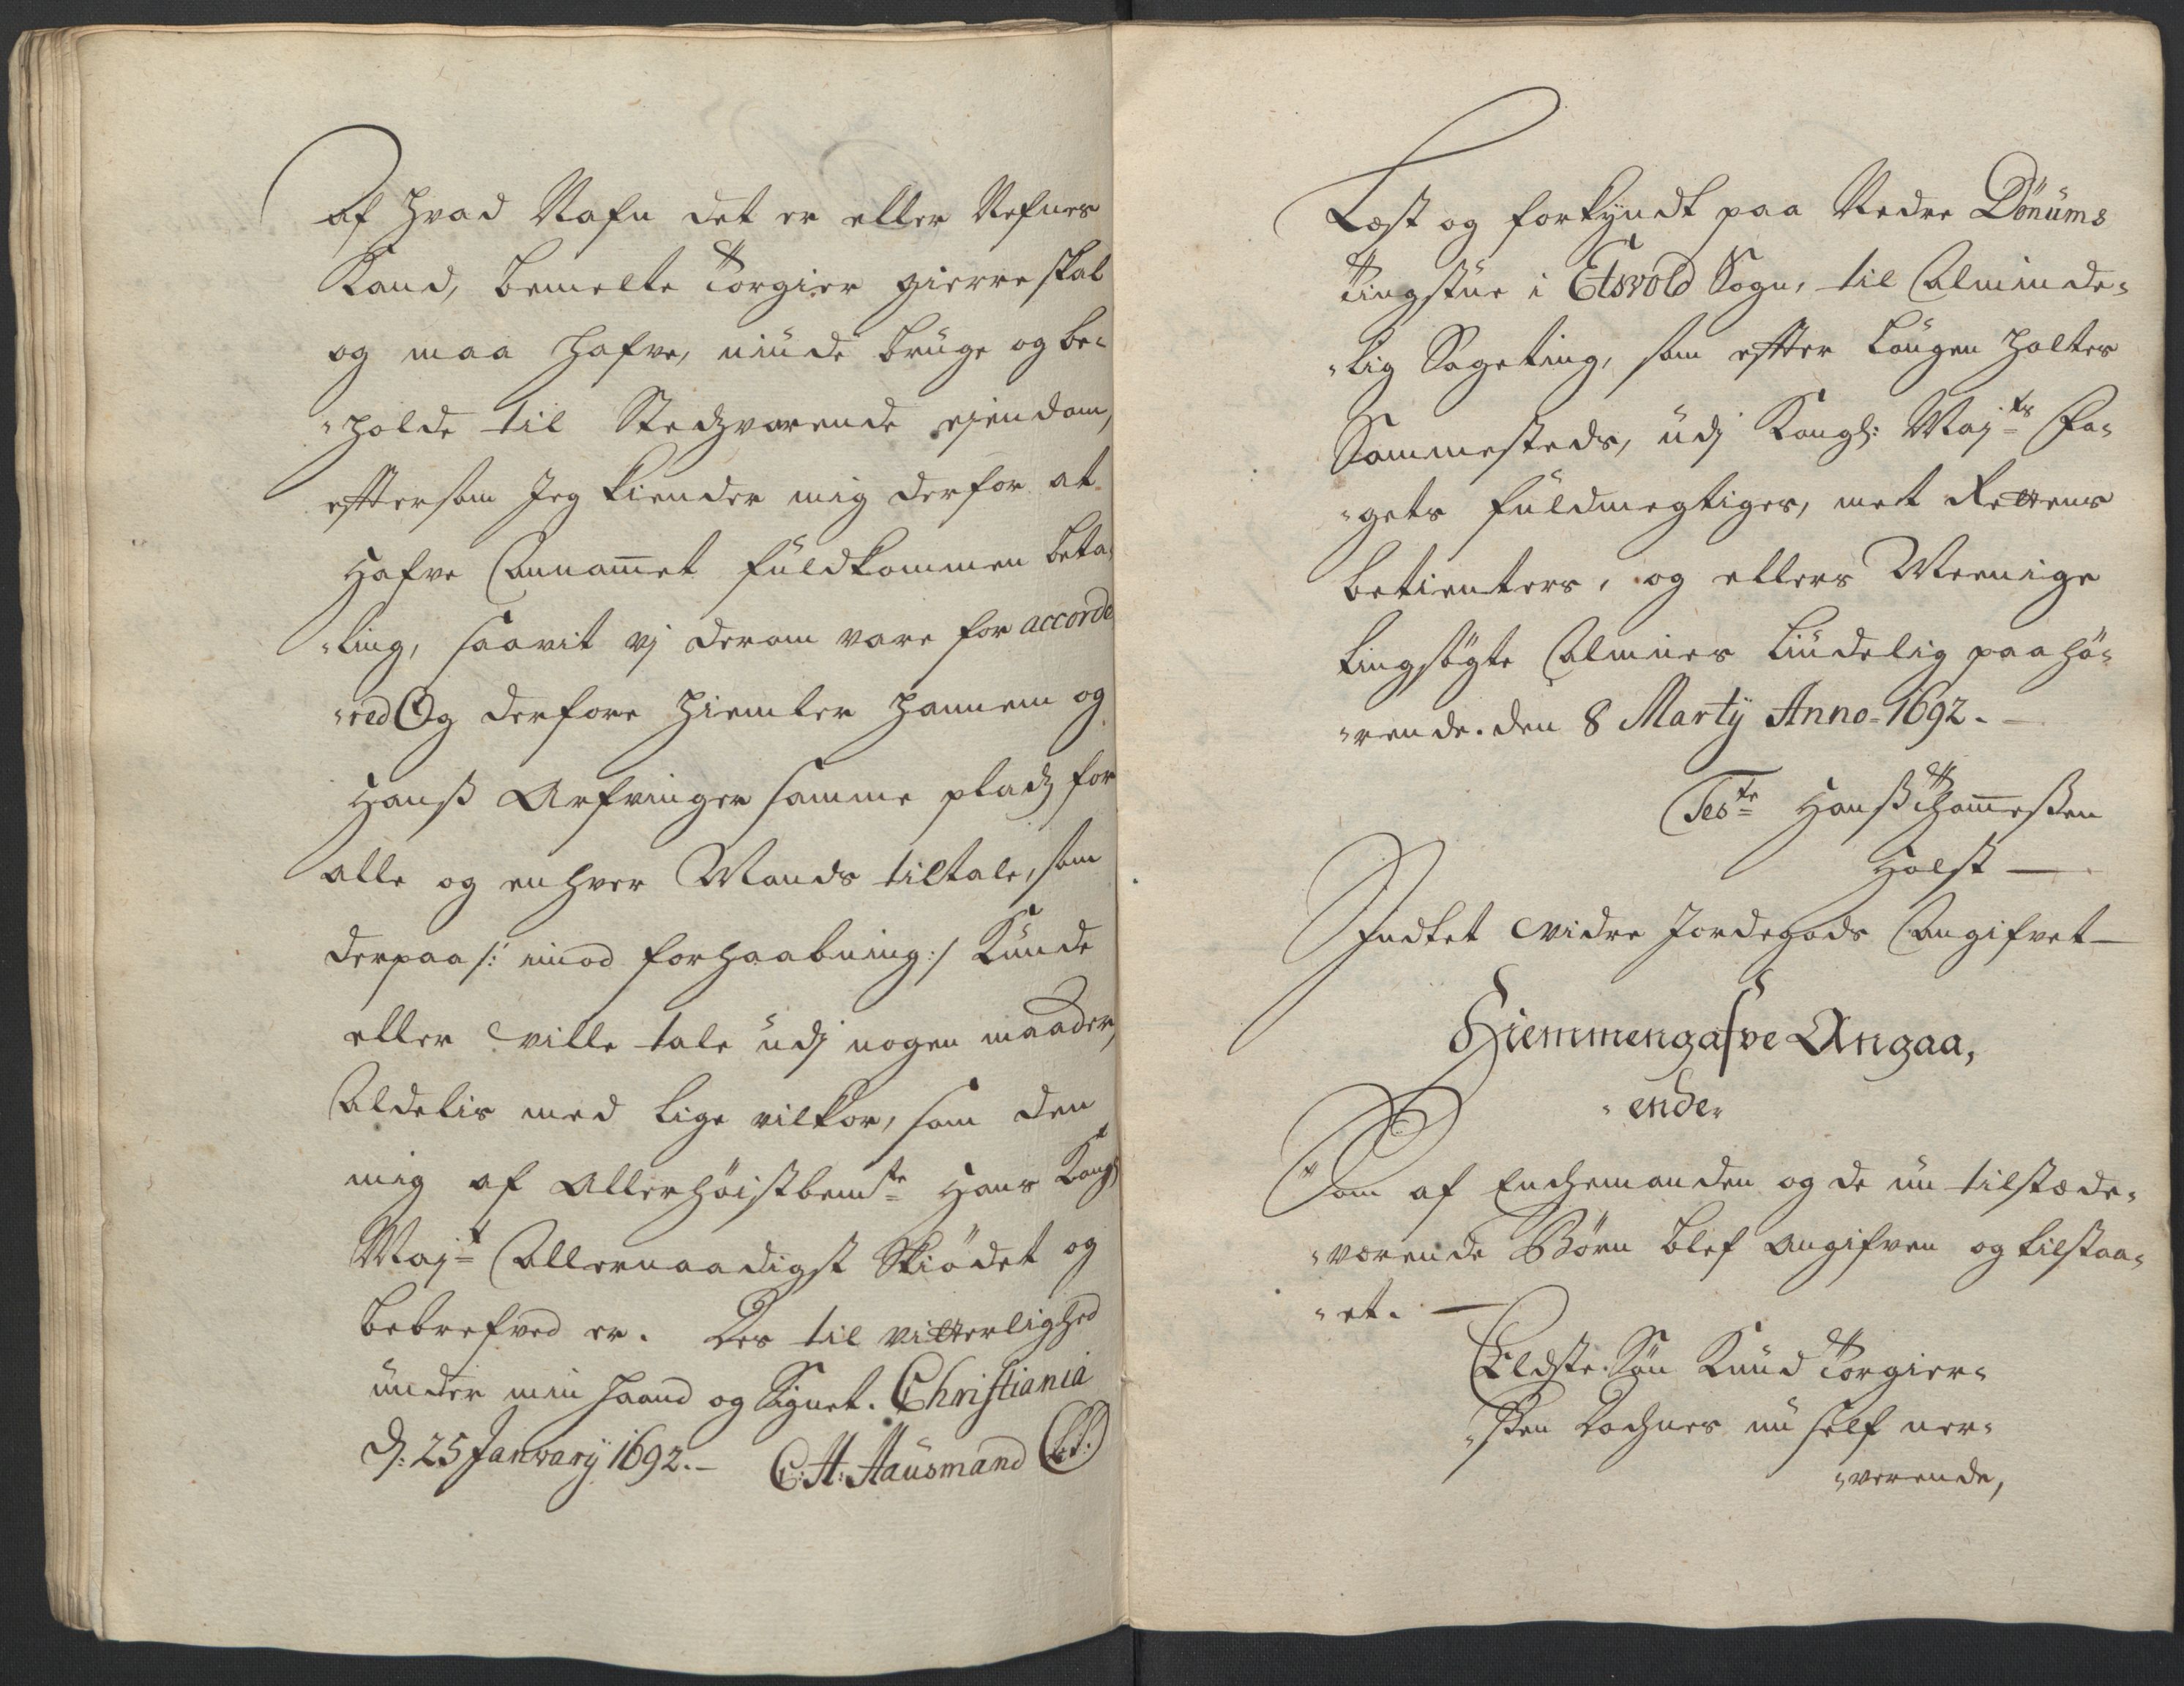 af hvad Nafn det er eller Nefnes
Kand, bemelte Torgier gierre skal
og maa hafve, niude bruge og be⸗
⸗holde til Stedzvarende ejendom,
effter som Jeg kiender mig derfor at
hafve Annammet fuldkommen beta⸗
⸗ling, saavit vj derom vare for accorde
⸗red Og derfore hiemler hannem og
Hanß Arfvinger samme pladz for
alle og enhver Mands tiltale, som
derpaa /: imod forhaabning :/ Kunde
eller ville tale udj nogen maader,
Aldelis med lige vilkor, som den
mig af Allerhöistbemte Hans Kongl
Majt Allernaadigst Skiödet og
bebrefved er. Des til vitterlighed
under min Haand og Signet. Christiania
D: 25 January 1692.– C: H: Hausmand (LS:)
Læst og forkyndt paa Nedre Dönums
Tingstue i Eisvold Sogn, til Alminde⸗
⸗lig Sageting, som effter Laugen holtes
Sammesteds, udj Kongl: Majts Fo⸗
⸗gets fuldmegtiges, met Rettens
betienters, og ellers Meenige
tingsögte Almues liudelig paahö⸗
⸗rende. den 8 Marty Anno 1692. –
Teste Hanß Thommeßen
Holst —
Indtet vidre Jordegods Angifvet —
Hiemmengafve Angaa,
⸗ende⸗
Som af Enchemanden og de nu tilstæde⸗
⸗værende Börn blef angifven og tilstaa⸗
⸗et. —
Eldste Sön Knud Torgier⸗
⸗sten Dochnes nu self ner⸗
⸗verende,